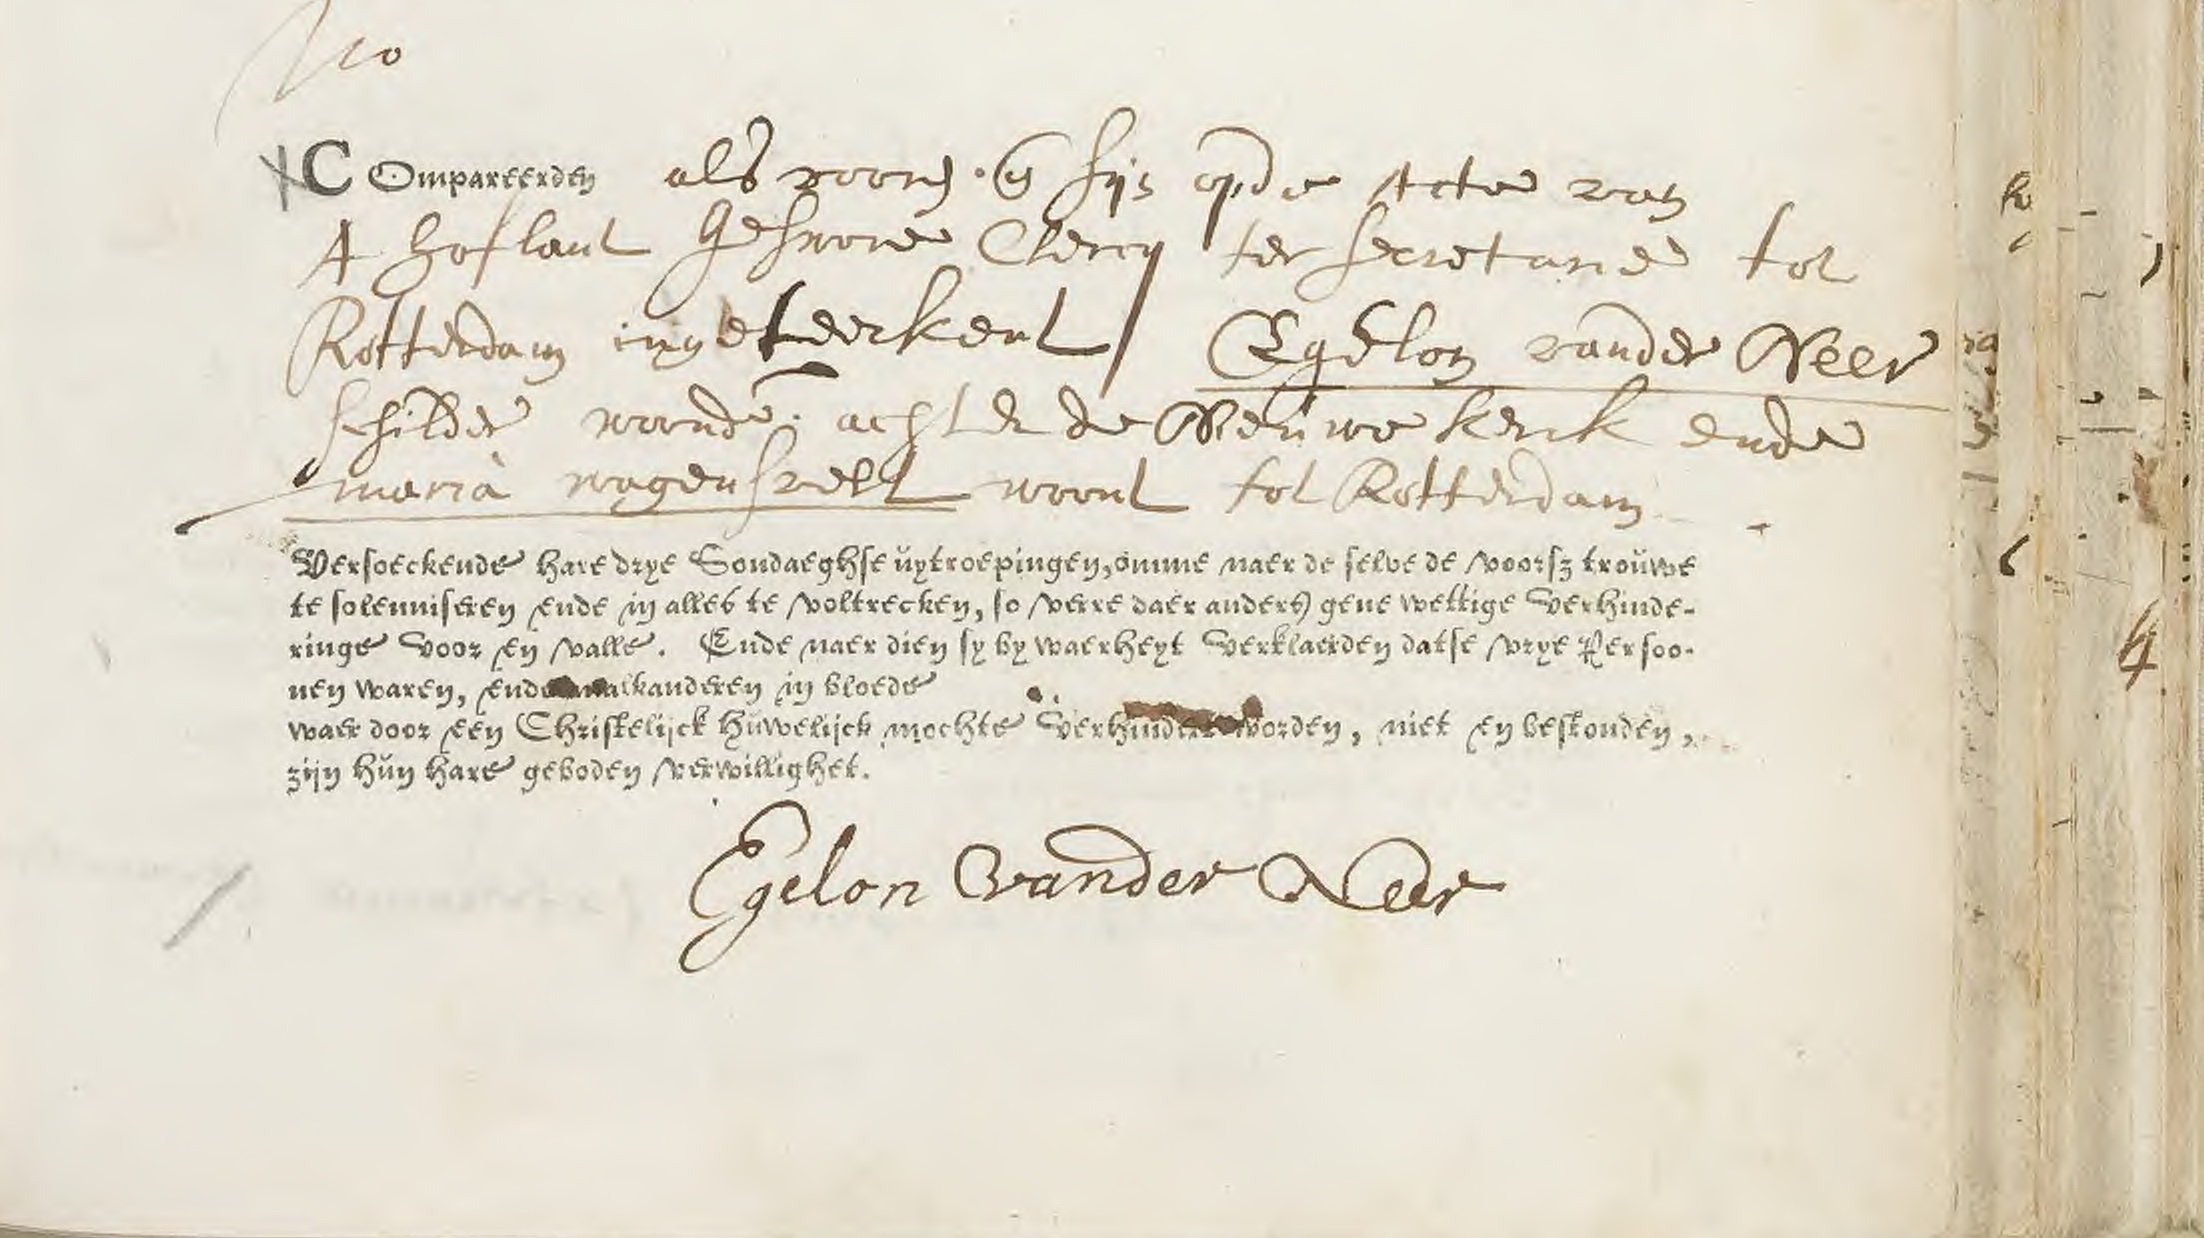 COmpareerden als voorn. en sijn op de Acte van
A hoflant Geswore Clercq ter Secretarie tot
Rotterdam ingeteeckent / Egelon vander Neer
schilder woonde. achter de Nieuwe kerck ende
maria wagensvelt woont tot Rotterdam
Versoeckende hare drye Sondaeghse uytroepingen, omme naer de selve de voorsz trouwe
te solenniseren ende in alles te voltrecken, so verre daer anders gene wettige verhinde-
ringe voor en valle. Ende naer dien sy by waerheyt verklaerden datse vrye Persoo-
nen waren, ende malkanderen in bloede
waer door een Christelijck huwelijck mochte verhindert worden, niet en bestonden,
zijn hun hare geboden verwillighet.
Egelon Vander Neer